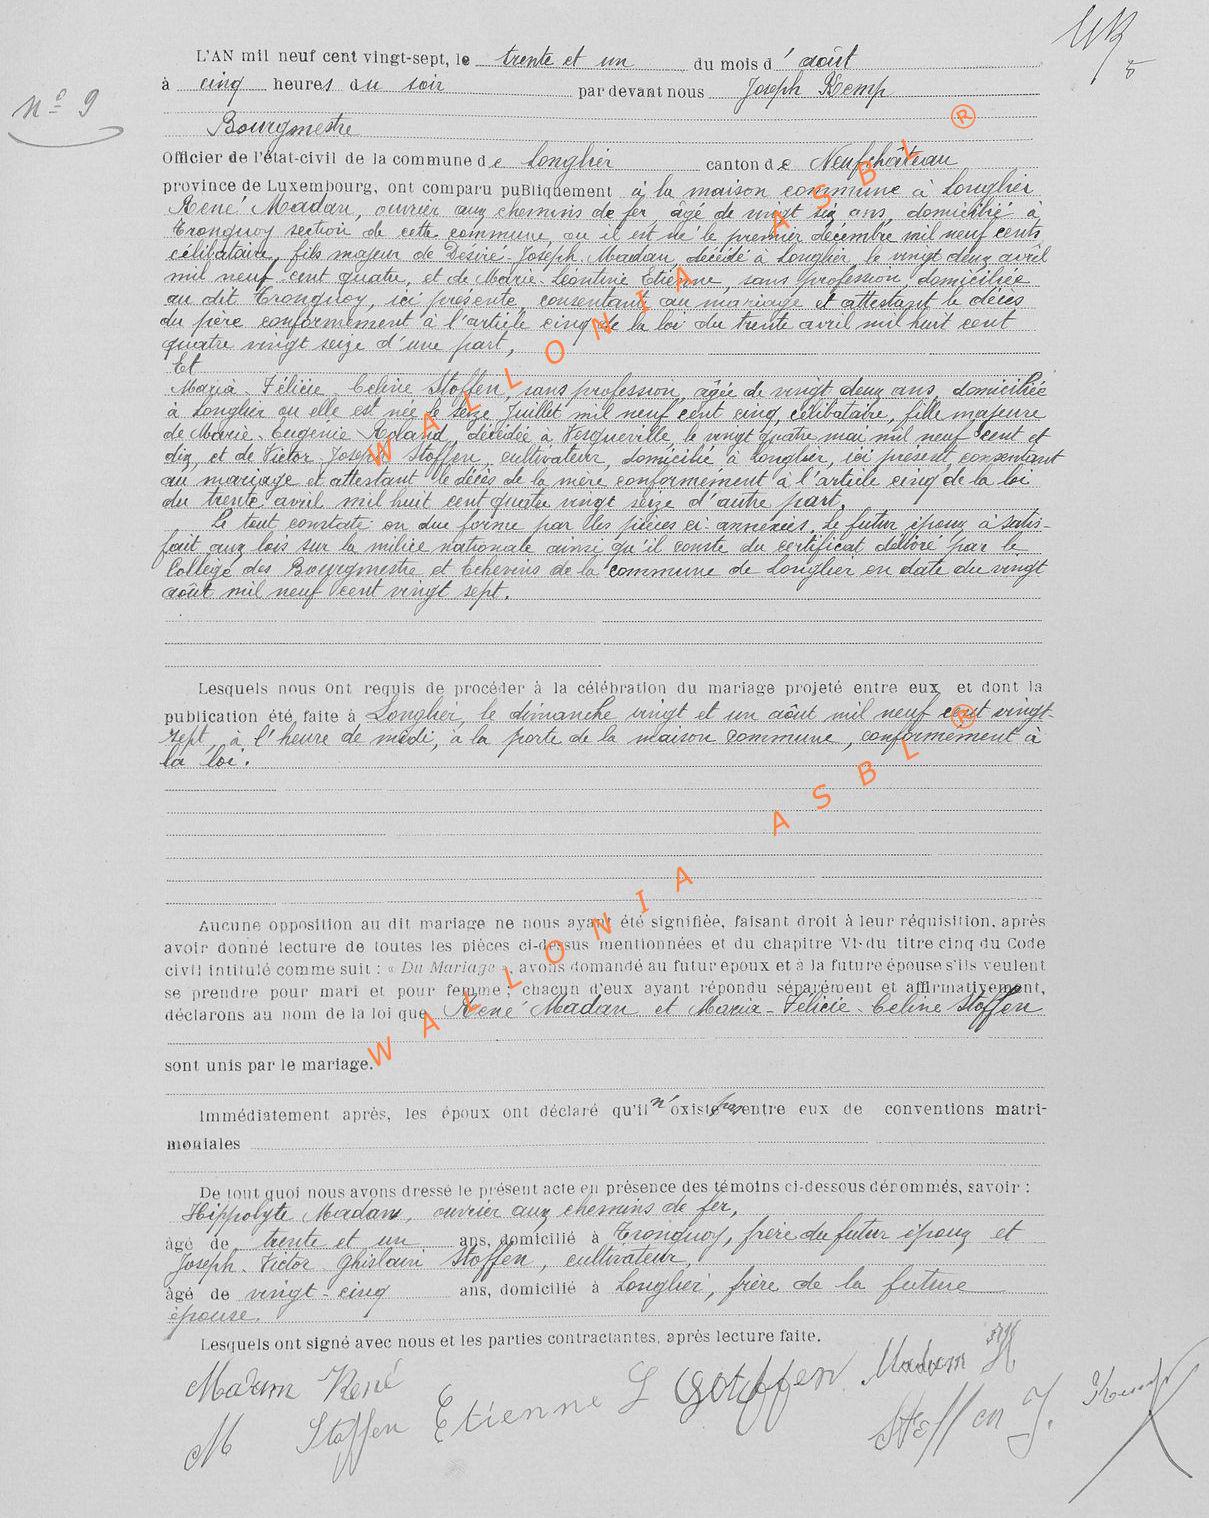 L'AN mil neuf cent vingt-sept, le trente et un du mois d' août
à cinq heures du soir par devant nous Joseph Kemp
N° 9
Bourgmestre
Officier de l'état-civil de la commune de Longlier canton de Neufchâteau
province de Luxembourg, ont comparu puBliquement à la maison commune à Longlier
René Madan, ouvrier aux chemins de fer âgé de vingt six ans, domicilié à
Tronquoy section de cette commune, ou il est né le premier décembre mil neuf cents
célibataire, fils majeur de Désiré-Joseph Madan, décédé à Longlier, le vingt deux avril
mil neuf cent quatre, et de Marie-Léontine Etienne, sans profession, domiciliée
au dit Tronquoy, ici présente, consentant au mariage et attestant le décès
du père conformément à l'article cinq de la loi du trente avril mil huit cent
quatre vingt seize d'une part,
Et
Maria Félicie Celine Stoffen, sans profession, âgée de vingt deux ans, domiciliée
à Longlier ou elle est née le seize Juillet mil neuf cent cinq, célibataire, fille majeure
de Marie-Eugénie Roland, décédée à Vesqueville, le vingt quatre mai mil neuf cent et
dix, et de Victor Joseph Stoffen, cultivateur, domicilié à Longlier, ici présent, consentant
au mariage et attestant le décès de la mère conformément à l'article cinq de la loi
du trente avril mil huit cent quatre vingt seize d'autre part.
Le tout constaté en due forme par les pièces ci-annexées. Le futur époux à satis-
fait aux lois sur la milice nationale ainsi qu'il conste du certificat délivré par le
Collège des Bourgmestre et Echevins de la commune de Longlier en date du vingt
août mil neuf cent vingt sept.
Lesquels nous ont requis de procéder à la célébration du mariage projeté entre eux et dont la
publication été faite à Longlier, le dimanche vingt et un août mil neuf cent vingt-
sept, à l'heure de midi, à la porte de la maison commune, conformément à
la loi.
Aucune opposition au dit mariage ne nous ayant été signifiée, faisant droit à leur réquisition, après
avoir donné lecture de toutes les pièces ci-dessus mentionnées et du chapitre VI du titre cinq du Code
civil intitulé comme suit : « Du Mariage », avons domandé au futur époux et à la future épouse s'ils veulent
se prendre pour mari et pour femme ; chacun d'eux ayant répondu séparément et affirmativement,
déclarons au nom de la loi que René Madan et Maria-Félicie-Celine Stoffen
sont unis par le mariage.
Immédiatement après, les époux ont déclaré qu'il n'existe pas entre eux de conventions matri-
moniales
De tout quoi nous avons dressé le présent acte en présence des témoins ci-dessous dénommés, savoir :
Hippolyte Madan, ouvrier aux chemins de fer,
âgé de trente et un ans, domicilié à Tronquoy, frère du futur époux et
Joseph-Victor-Ghislain Stoffen, cultivateur,
âgé de vingt-cinq ans, domicilié à Longlier, frère de la future
épouse.
Lesquels ont signé avec nous et les parties contractantes, après lecture faite.
Madan René
M Stoffen Etienne L Stoffen Madan H
Steffen J. Kemp
WALLONIA ASBL ®
WALLONIA ASBL ®